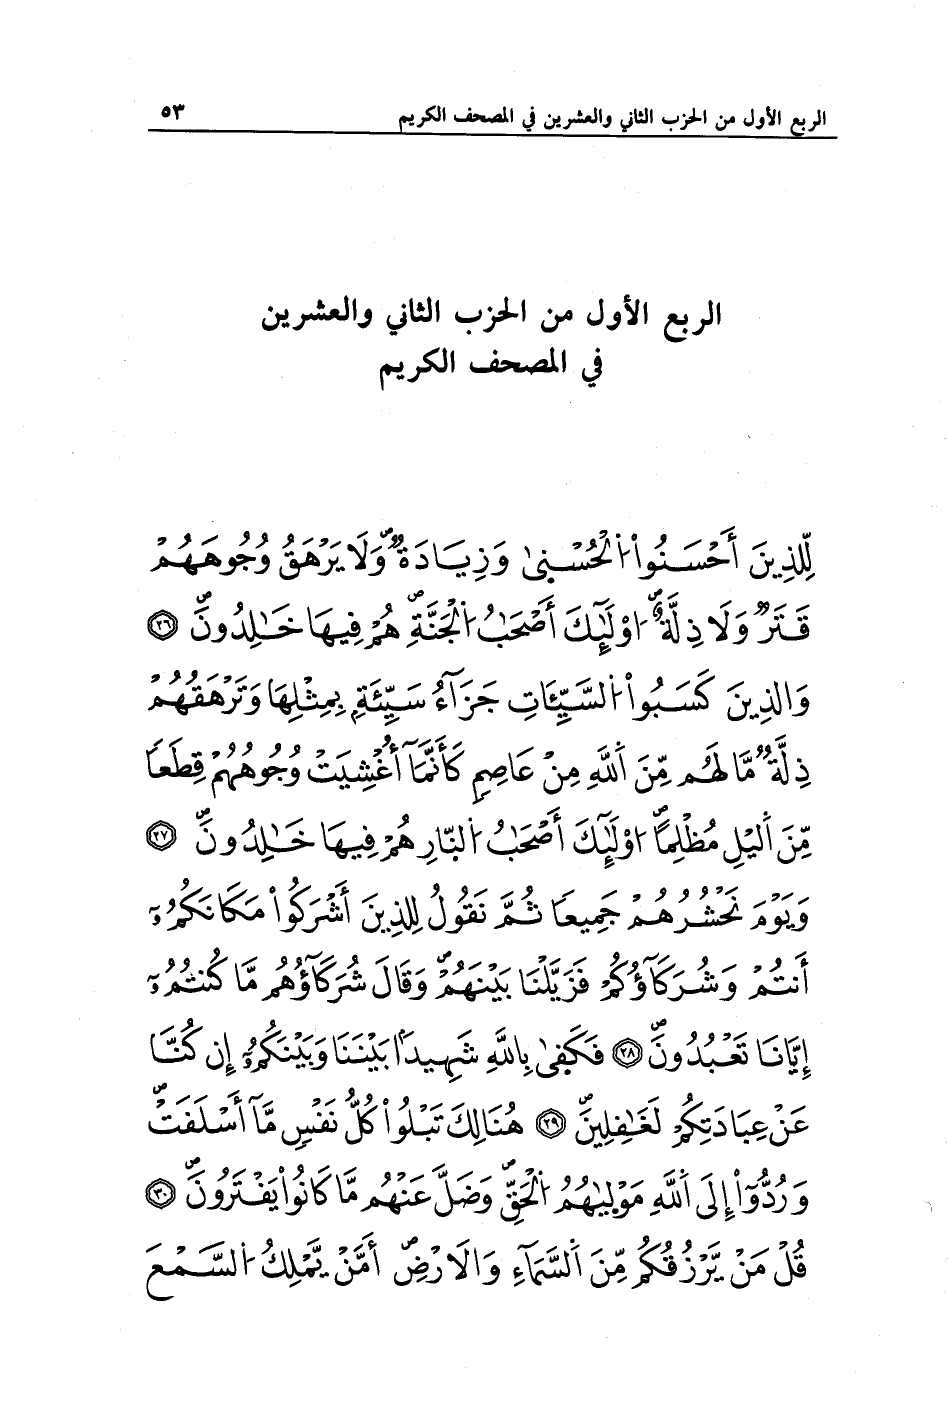 الربع الأول من الحزب الثاني والعشرين في المصحف الكريم ٥٣
الربع الأول من الحزب الثاني والعشرين
في المصحف الكريم
لِّلذِينَ أَحْسَنُواْ اُ۬لْحُسْنۭيٰ وَزِيَادَةٞۖ وَلَا يَرْهَقُ وُجُوهَهُمْ
قَتَرٞ وَلَا ذِلَّةٌۖ ا۟وْلَٰٓئِكَ أَصْحَٰبُ اُ۬لْجَنَّةِۖ هُمْ فِيهَا خَٰلِدُونَۖ ٢٦
وَالذِينَ كَسَبُواْ اُ۬لسَّيِّـَٔاتِ جَزَآءُ سَيِّئَةِۢ بِمِثْلِهَا وَتَرْهَقُهُمْ
ذِلَّةٞ مَّا لَهُم مِّنَ اَ۬للَّهِ مِنْ عَاصِمٖ كَأَنَّمَآ أُغْشِيَتْ وُجُوهُهُمْ قِطَعاٗ
مِّنَ اَ۬ليْلِ مُظْلِماًۖ ا۟وْلَٰٓئِكَ أَصْحَٰبُ اُ۬لنّ۪ارِ هُمْ فِيهَا خَٰلِدُونَۖ ٢٧
وَيَوْمَ نَحْشُرُهُمْ جَمِيعاٗ ثُمَّ نَقُولُ لِلذِينَ أَشْرَكُواْ مَكَانَكُمُۥٓ
أَنتُمْ وَشُرَكَآؤُكُمْ فَزَيَّلْنَا بَيْنَهُمْۖ وَقَالَ شُرَكَآؤُهُم مَّا كُنتُمُۥٓ
إِيَّانَا تَعْبُدُونَۖ ٢٨ فَكَفۭيٰ بِاللَّهِ شَهِيداَۢ بَيْنَنَا وَبَيْنَكُمُۥٓ إِن كُنَّا
عَنْ عِبَادَتِكُمْ لَغَٰفِلِينَۖ ٢٩ هُنَالِكَ تَبْلُواْ كُلُّ نَفْسٖ مَّآ أَسْلَفَتْۖ
وَرُدُّوٓاْ إِلَى اَ۬للَّهِ مَوْل۪يٰهُمُ اُ۬لْحَقِّۖ وَضَلَّ عَنْهُم مَّا كَانُواْ يَفْتَرُونَۖ ٣٠
قُلْ مَنْ يَّرْزُقُكُم مِّنَ اَ۬لسَّمَآءِ وَالَارْضِۖ أَمَّنْ يَّمْلِكُ اُ۬لسَّمْعَ